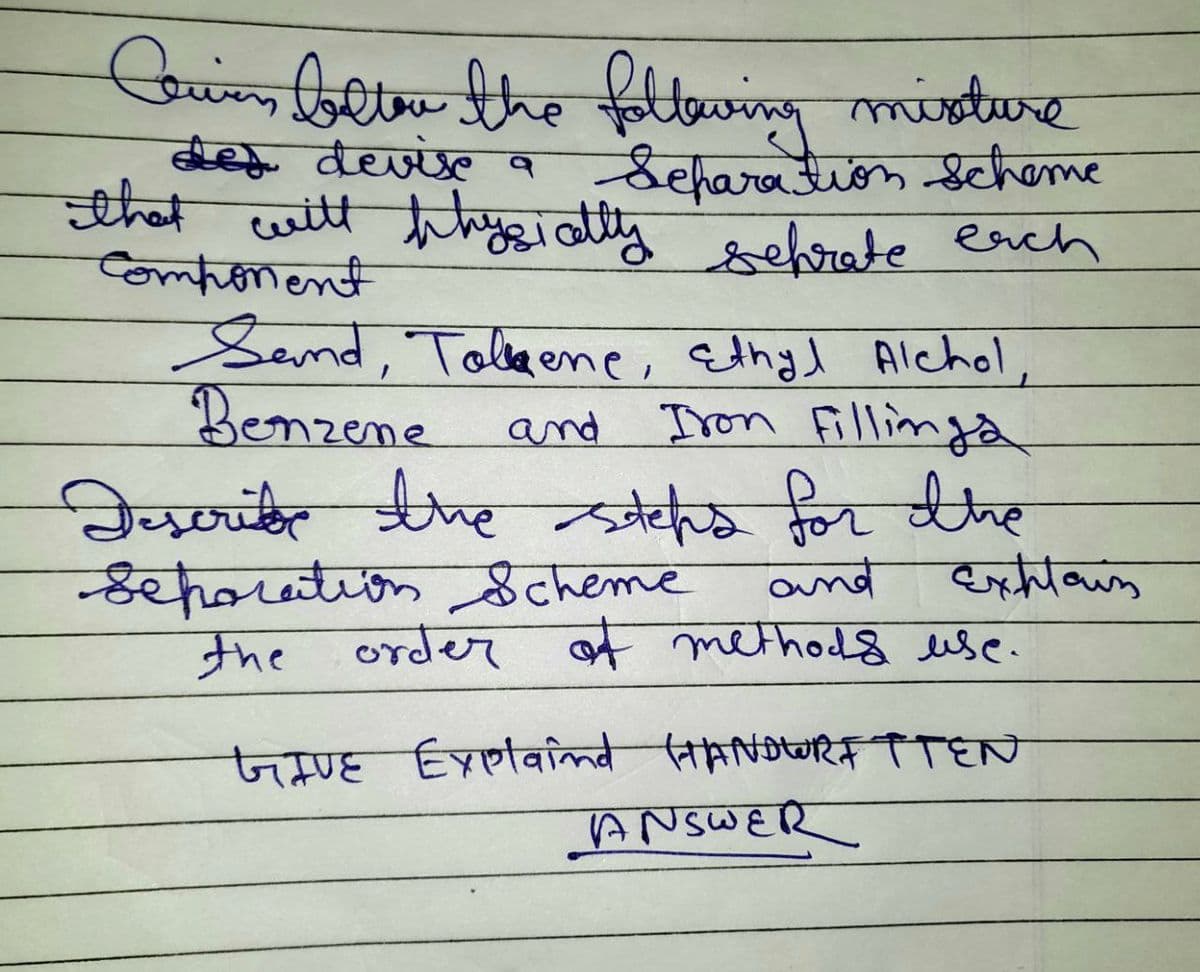 Given bellow the following mixture
des devise a Separation Scheme
that will physically seprate each
Component
Sand, Toluene, Ethyl Alchol,
Benzene and Iron Fillings
Describe the steps for the
Seporation Scheme and Explain
the order of methods use.
GIVE Explaind HANDWRITTEN
ANSWER